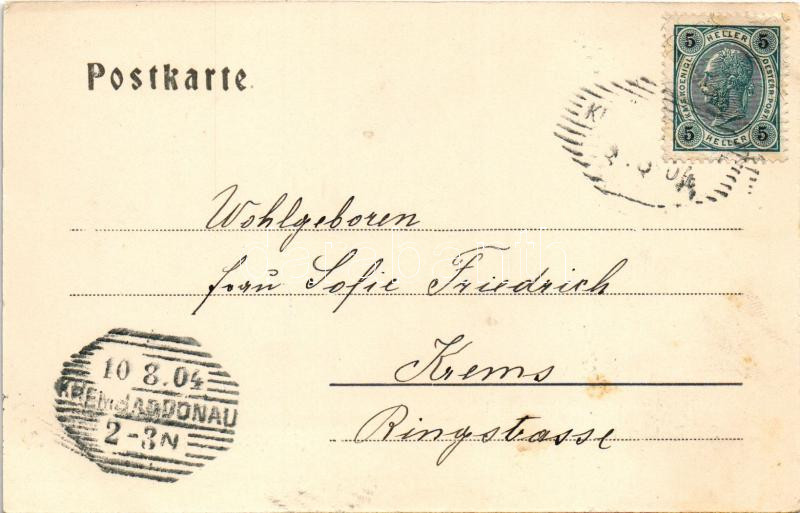 Postkarte
5 HELLER 5
KAIS. KOENIGL. OESTERR. POST.
5 HELLER 5
04
Wohlgeboren
Frau Sofie Friedrich
Krems
Ringstrasse
10 8.04
KREMS A.D. DONAU
2-3N